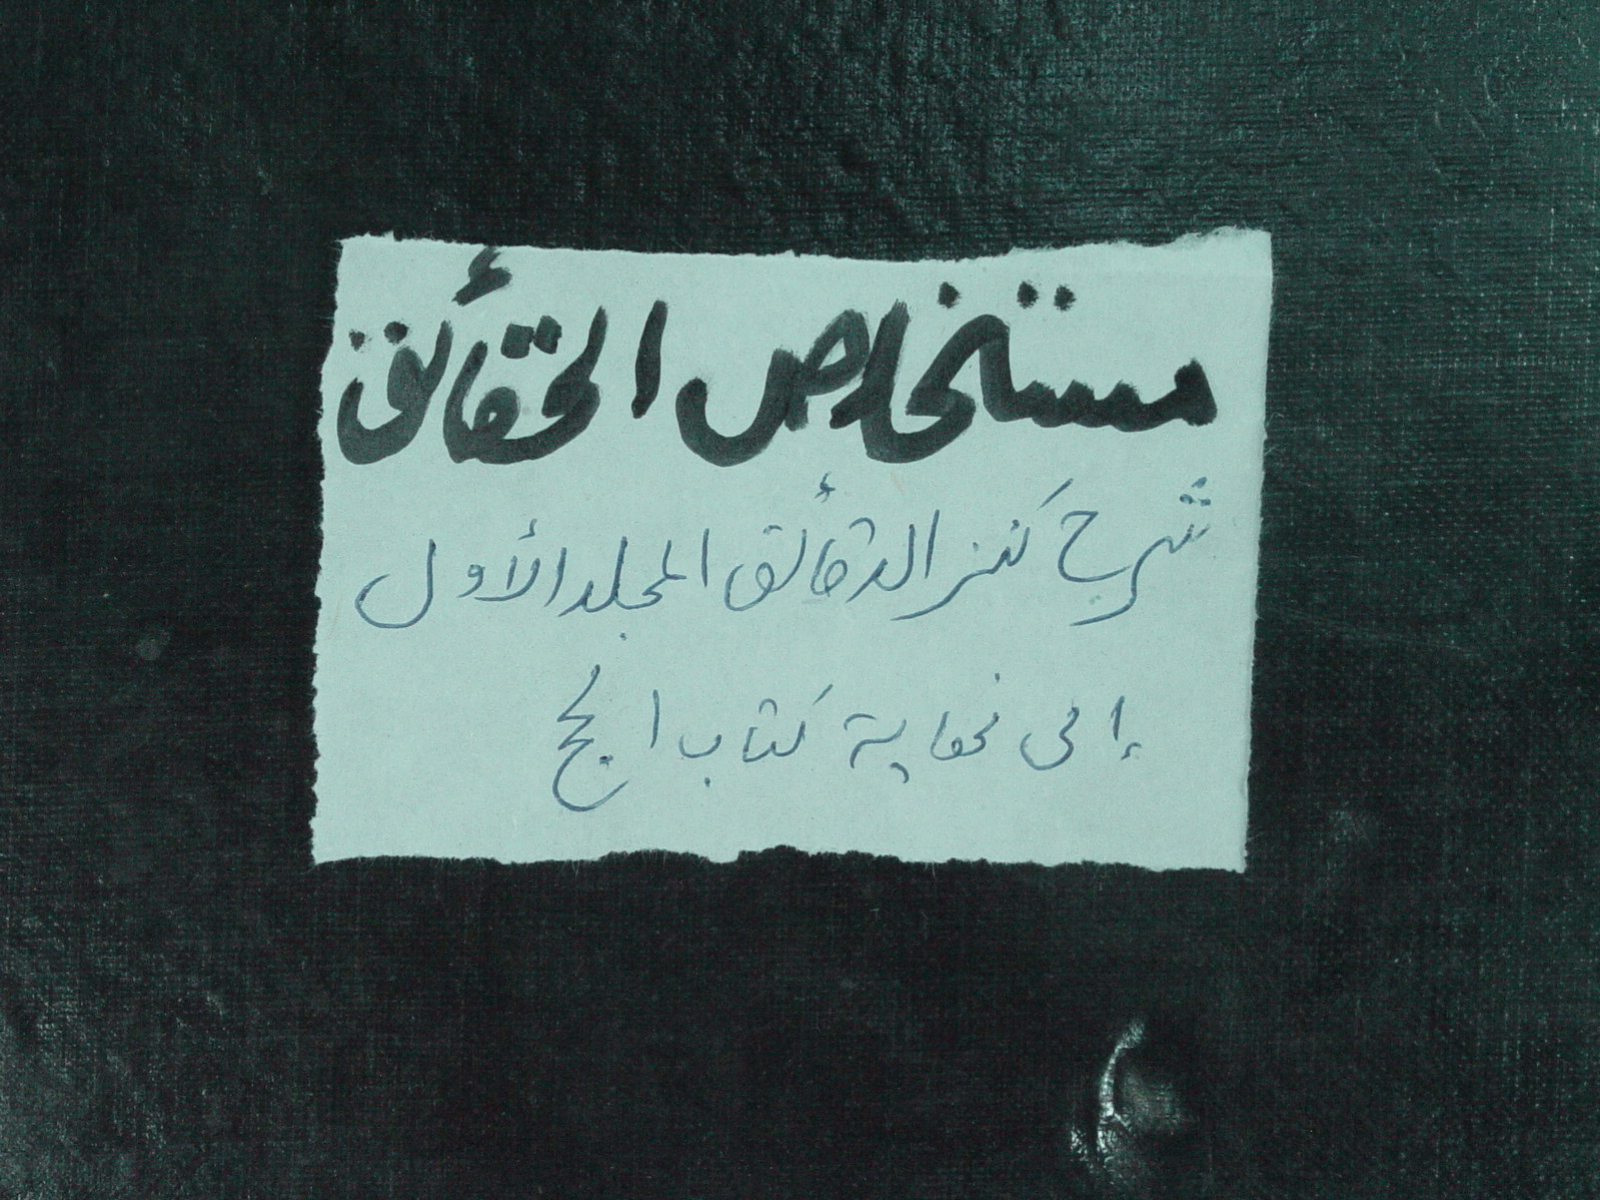 مستخلاص الحقائق
شرح كنز الدقائق المجلد الأول
إلى نهاية كتاب الحج